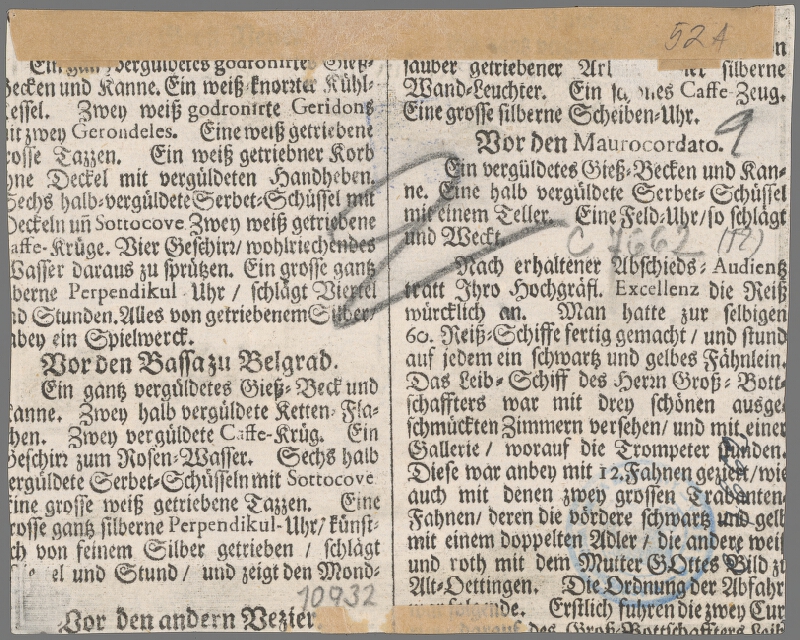 52 A
Ein gantz verguldetes godronirtes Gieß-
Becken und Kanne. Ein weiß-knorrter Kühl-
essel. Zwey weiß godronirte Geridons
it zwey Gerondeles. Eine weiß getriebene
rosse Tazzen. Ein weiß getriebner Korb
hne Deckel mit vergüldeten Handheben.
Sechs halb-vergüldete Serbet-Schüssel mit
Deckeln uñ Sottocove Zwey weiß getriebene
affe-Krüge. Vier Geschirr/ wohlriechendes
Wasser daraus zu sprützen. Ein grosse gantz
lberne Perpendikul Uhr / schlägt Viertel
nd Stunden. Alles von getriebenem Silber/
nbey ein Spielwerck.
Vor den Bassa zu Belgrad.
Ein gantz vergüldetes Gieß-Beck und
anne. Zwey halb vergüldete Ketten-Fla-
chen. Zwey vergüldete Caffe-Krüg. Ein
Geschirr zum Rosen-Wasser. Sechs halb
ergüldete Serbet-Schüsseln mit Sottocove
ine grosse weiß getriebene Tazzen. Eine
rosse gantz silberne Perpendikul-Uhr/ künst-
ch von feinem Silber getrieben / schlägt
el und Stund / und zeigt den Mond-
10932
Vor den andern Vezier.
sauber getriebener silberne
Wand-Leuchter. Ein schönes Caffe-Zeug.
Eine grosse silberne Scheiben-Uhr.
Vor den Maurocordato. 9
Ein vergüldetes Gieß-Becken und Kan-
ne. Eine halb vergüldete Serbet-Schüssel
mit einem Teller. Eine Feld-Uhr/ so schlägt
und Weckt. C 7662 (12)
Nach erhaltener Abschieds-Audientz
tratt Ihro Hochgräfl. Excellenz die Reiß
würcklich an. Man hatte zur selbigen
60. Reiß-Schiffe fertig gemacht / und stund
auf jedem ein schwartz und gelbes Fähnlein.
Das Leib-Schiff des Herrn Groß-Bott-
schaffters war mit drey schönen ausge-
schmückten Zimmern versehen/ und mit einer
Gallerie / worauf die Trompeter stunden.
Diese war anbey mit 12. Fahnen geziert/ wie
auch mit denen zwey grossen Trabanten-
Fahnen/ deren die vördere schwartz und gelb
mit einem doppelten Adler / die andere weiß
und roth mit dem Mutter GOttes Bild zu
Alt-Oettingen. Die Ordnung der Abfahr
war folgende. Erstlich fuhren die zwey Cur
darauf des Groß-Bottschaffters Leib